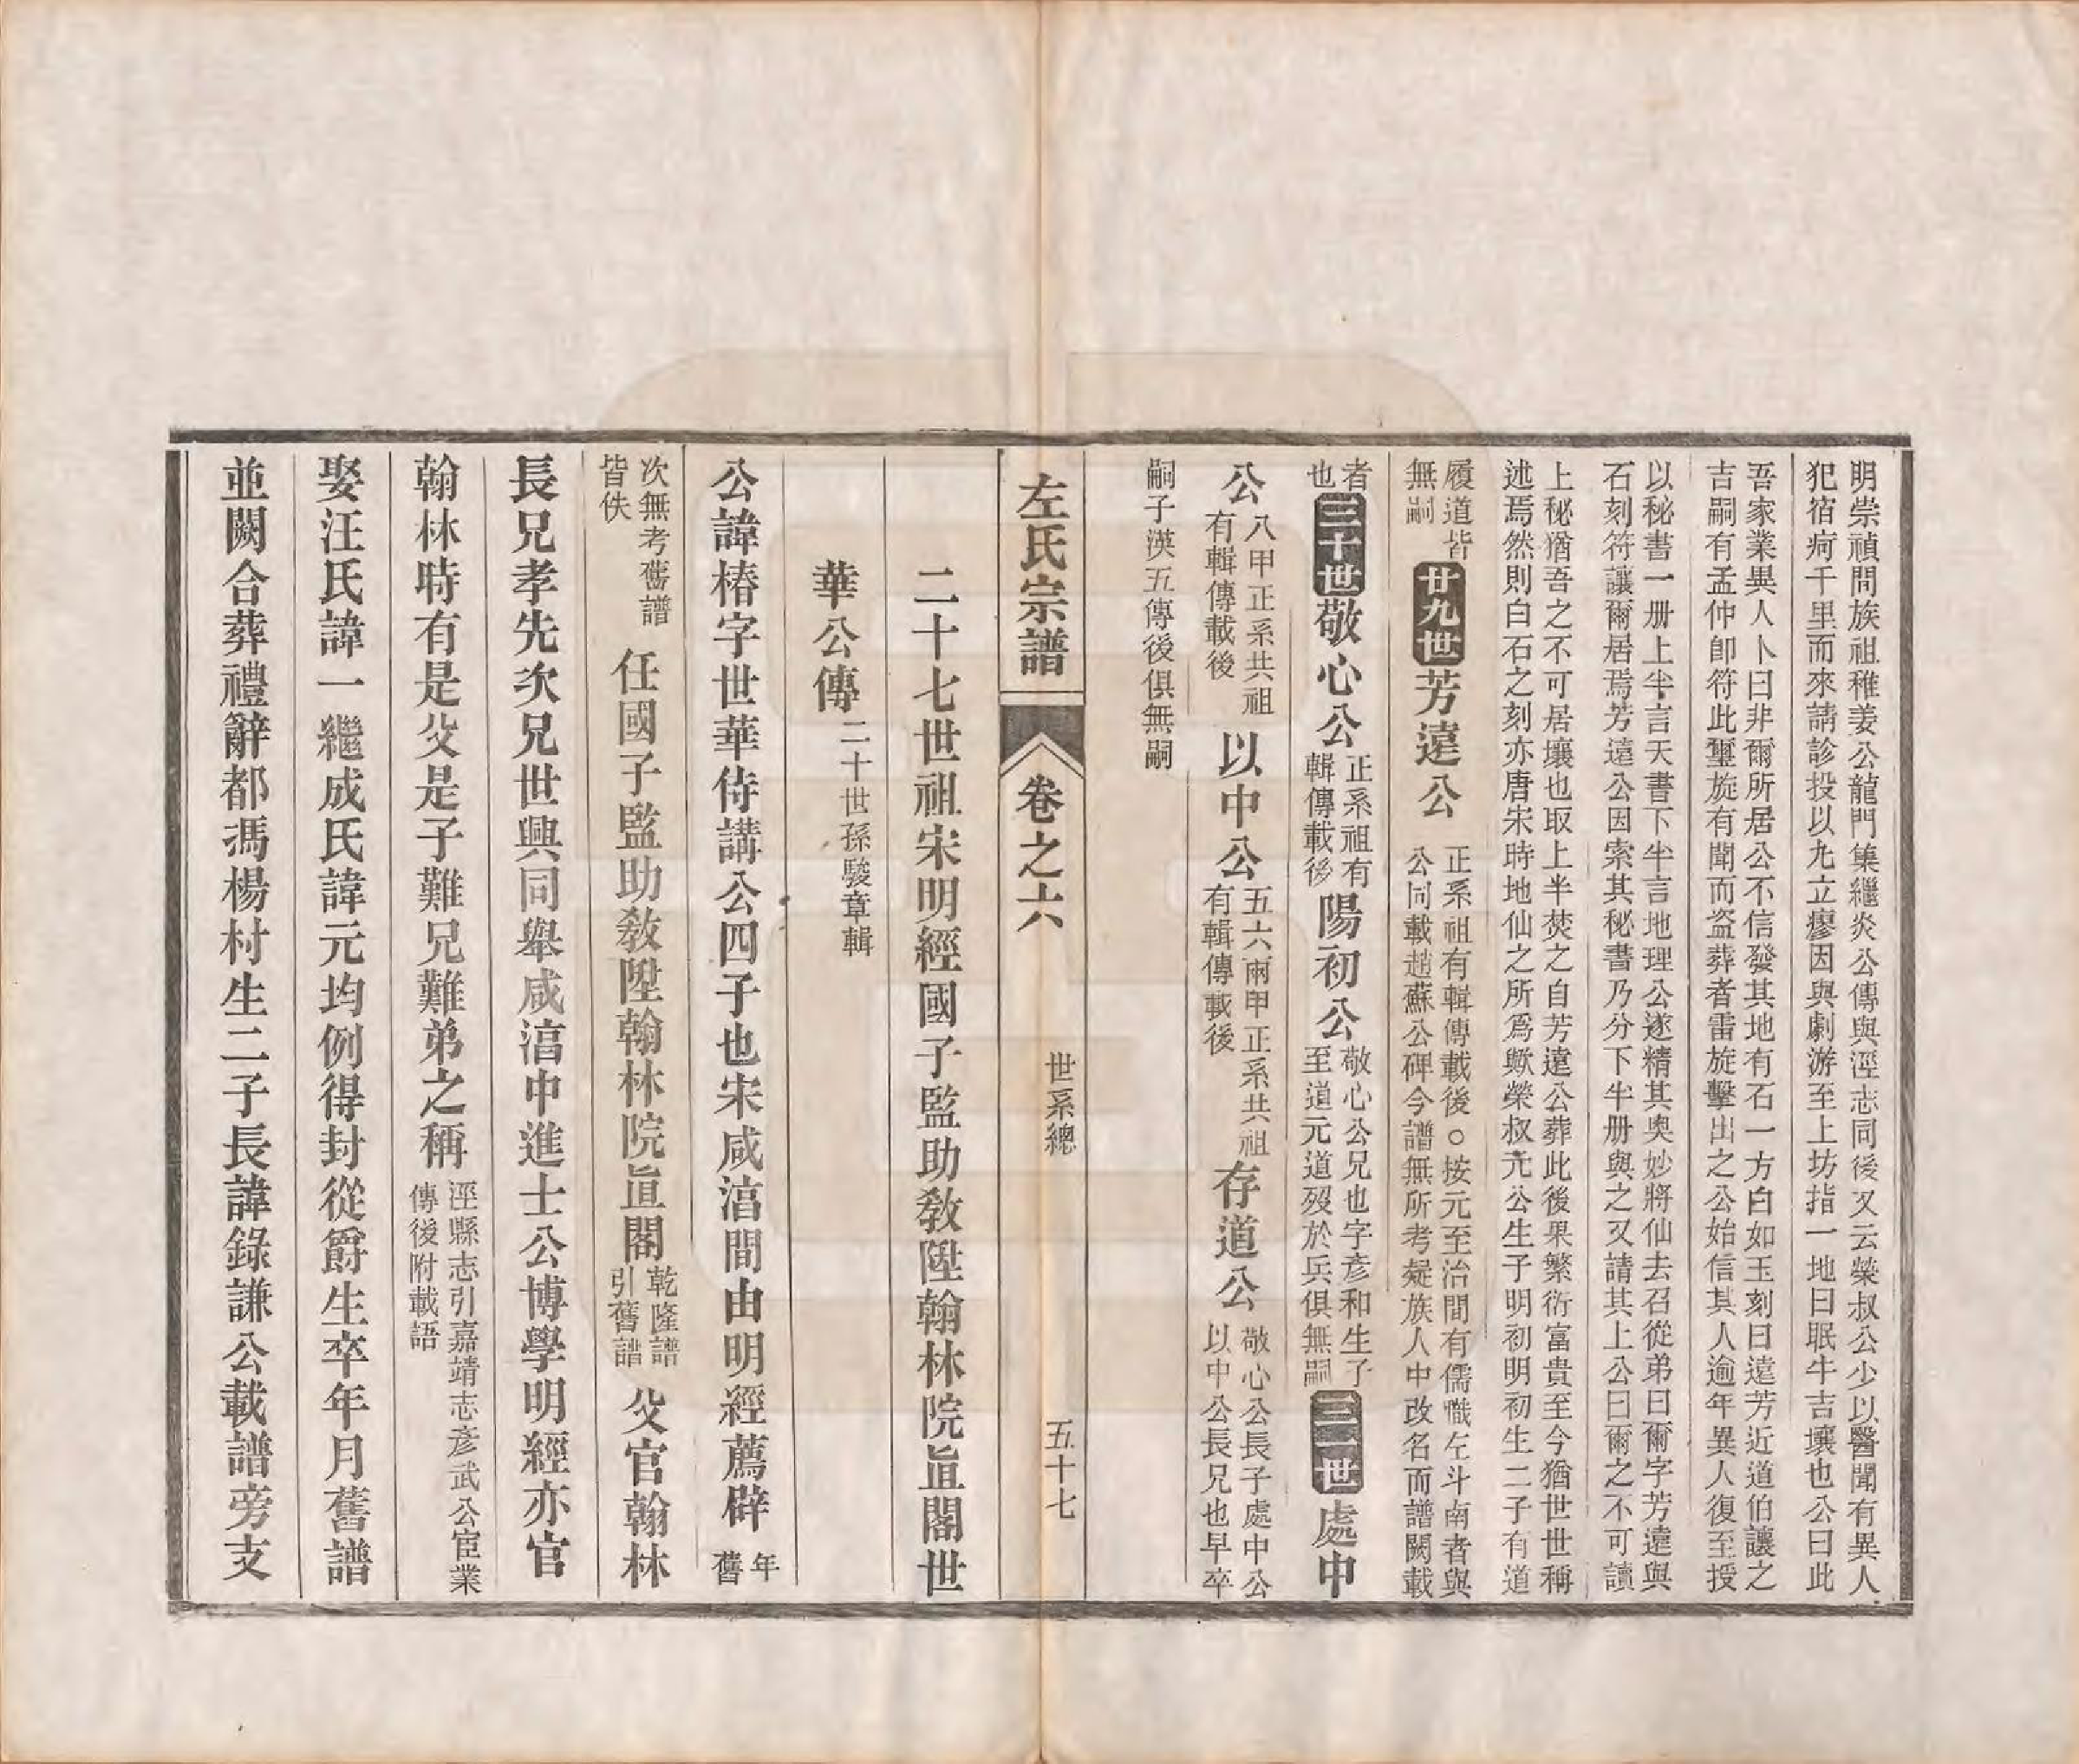 明崇禎間族祖稚姜公龍門集繼炎公傳與涇志同後又云榮叔公少以醫聞有異人
犯宿疴千里而來請診投以九立瘳因與劇游至上坊指一地曰眠牛吉壤也公曰此
吾家業異人卜曰非爾所居公不信發其地有石一方白如玉刻曰遠芳近道伯讓之
吉嗣有孟仲卽符此璽旋有聞而盜葬者雷旋擊出之公始信其人逾年異人復至授
以秘書一册上半言天書下半言地理公遂精其奧妙將仙去召從弟曰爾字芳遠與
石刻符讓爾居焉芳遠公因索其秘書乃分下半册與之又請其上公曰爾之不可讀
上秘猶吾之不可居壤也取上半焚之自芳遠公葬此後果繁衍富貴至今猶世世稱
述焉然則白石之刻亦唐宋時地仙之所爲歟榮叔元公生子明初明初生二子有道
履道皆無嗣 廿九世芳遠公 正系祖有輯傳載後○按元至治間有儒職左斗南者與公同載趙蘇公碑今譜無所考疑族人中改名而譜闕載
者也三十世敬心公正系祖有輯傳載後陽初公敬心公兄也字彦和生子至道元道歿於兵俱無嗣三一世處中
公八甲正系共祖有輯傳載後 以中公五六兩甲正系共祖有輯傳載後 存道公敬心公長子處中公以中公長兄也早卒
嗣子渶五傳後俱無嗣
左氏宗譜 卷之六 世系總 五十七
二十七世祖宋明經國子監助敎陞翰林院直閣世
華公傳二十世孫駿章輯
公諱椿字世華侍講公四子也宋咸淳間由明經薦辟年舊
次無考舊譜皆佚 任國子監助敎陞翰林院直閣乾隆譜引舊譜 父官翰林
長兄孝先次兄世興同舉咸淳中進士公博學明經亦官
翰林時有是父是子難兄難弟之稱涇縣志引嘉靖志彥武公宦業傳後附載語
娶汪氏諱一繼成氏諱元均例得封從爵生卒年月舊譜
並闕合葬禮辭都馮楊村生二子長諱錄謙公載譜旁支